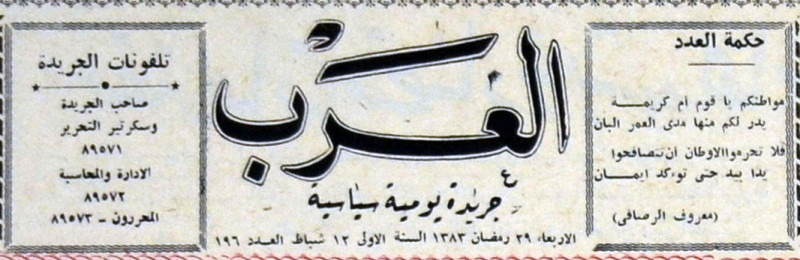 حكمة العدد
مواطنكم يا قوم أم كريمة
يدر لكم منها مدى العمر البان
فلا تحرموا الاوطان ان تتصافحوا
يدا بيد حتى تؤكد ايمان
(معروف الرصافي)
العرب
جريدة يومية سياسية
الاربعاء ٢٩ رمضان ١٣٨٣ السنة الاولى ١٢ شباط العدد ١٩٦
تلفونات الجريدة
صاحب الجريدة
وسكرتير التحرير
٨٩٥٧١
الادارة والمحاسبة
٨٩٥٧٢
المحررون - ٨٩٥٧٣